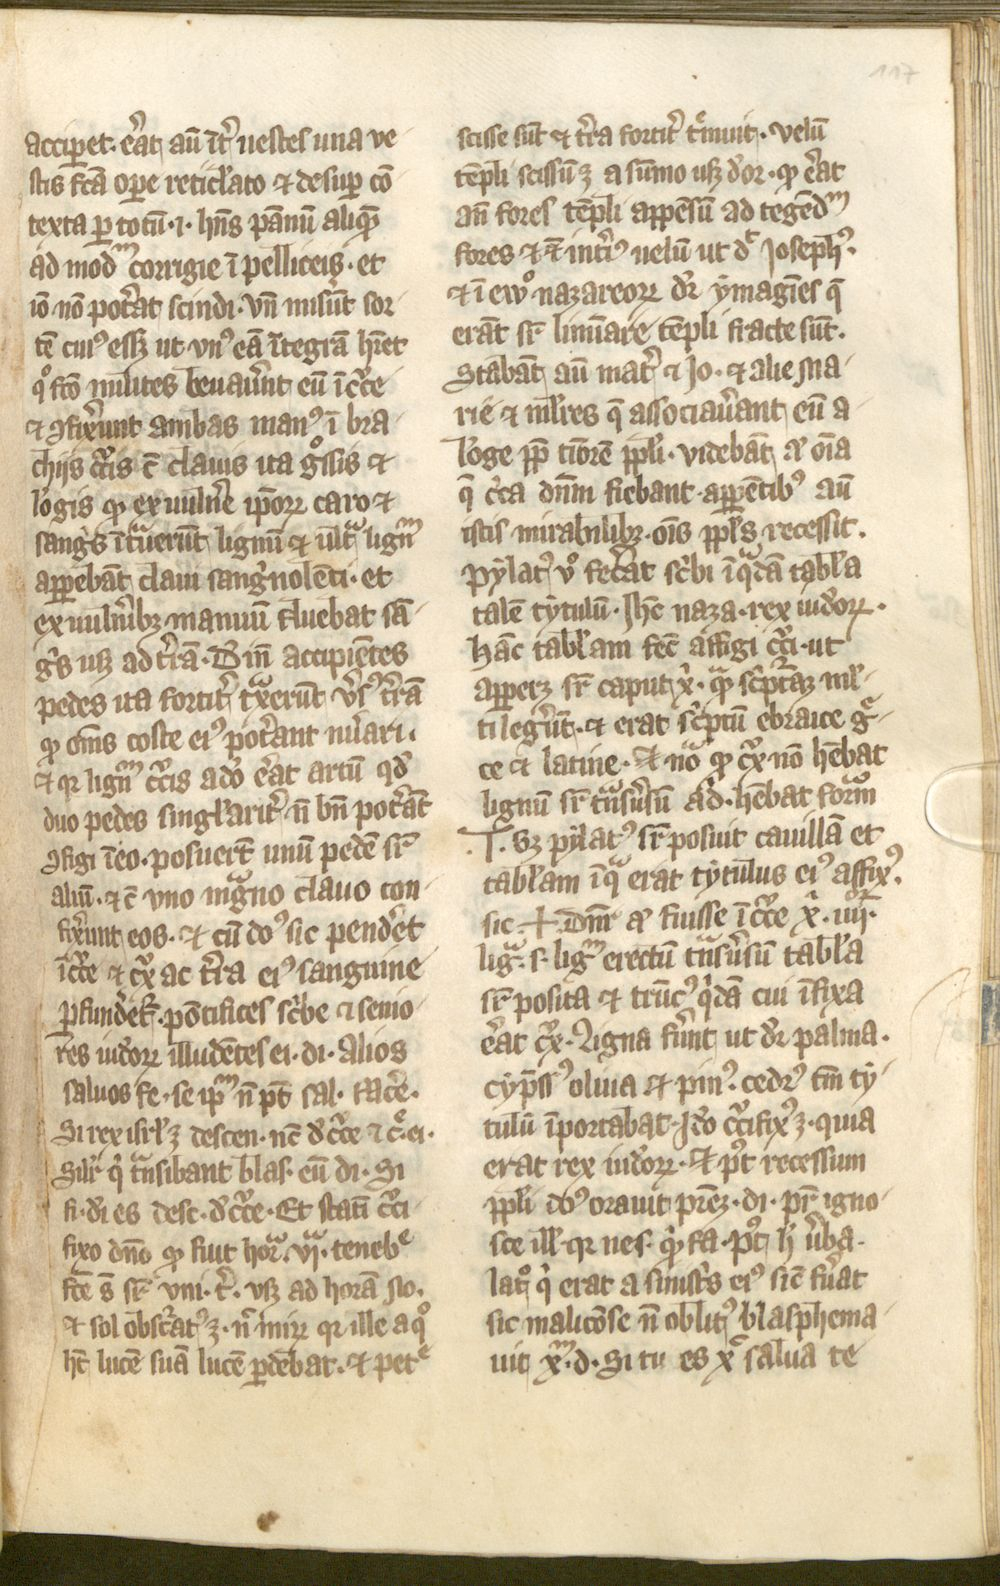 117
accip̱et. e͛at au̅ i̅t͛ uestes una ve
stis fc̅a op̱e reticl̕ato ⁊ desup̱ co̅
texta p̱ totu̅ ·i· hn̅s pa̅nu̅ aliqͣ
ad modᷟ corrigie i̅ pelliceis. et
io̅ no̅ pot͛at scindi. vn̅ miser̅t sor
te̅ cuiꝰ ess₃ ut vnꝰ ea̅ i̅tegra̅ hr̅et
qͦ fc̅o milites leuaue͛nt eu̅ i̅ cͨce
⁊ ꝯfix͛unt ambas manꝰ i̅ bra
chijs cͨcis c̅ clauis ita gͦssis ⁊
lo̅gis ꝙ ex uuln͛e ip̅oꝝ caro ⁊
sangͥs i̅tᷓuerūt lignu̅ ⁊ ultᷓ lignᷟ
app̱eba̅t claui sangͥnole̅ti. et
ex uuln͛ib₃ manuu̅ fluebat sa̅
gͥs usꝫ ad t͛ra̅. D in̅ accipie̅tes
pedes ita fortit͛ tᷓxeru̅t v͛sꝰ t͛ra̅
ꝙ om̅s coste eiꝰ pot͛ant nu͛ari.
⁊ qꝛ lignᷟ cͨcis ado̅ e͛at artu̅ qd̕
duo pedes singl̕arit͛ n̅ bn̅ pot͛a̅t
ꝯfigi i̅eo. posuer̅t unu̅ pede̅ sr̅
aliu̅. ⁊ c̅ vno mᷓgno clauo con
fix͛unt eos. ⁊ cu̅ do̅ꝰ sic pend͛et
i̅ cͨce ⁊ cͨx ac t͛ra eiꝰ sanguine
p̱fund͛et͛. po̅tifices sc͛be ⁊ senio
res iud͛oꝝ illude̅tes ei. di. alios
saluos fe. se ipᷟ n̅ pt̅ sal. fac͛e.
Si rex isrl̕ ꝫ descen. nc̅ d̕ cͨce ⁊ cͥ. ei.
Silr̕ qͥ tᷓnsibant blas. eu̅ di. Si
fi. d͛i es desc. d̕ cͨce. Et stati̅ cͨci
fixo dn̅o ꝙ fuit horᷓ. vjᷓ. tenebͤ
fc̅e s̅ sr̅ vni. t͛. vsꝫ ad hora̅ no.
⁊ sol obsc͛atꝰ ꝫ. n͛ miꝝ qꝛ ille a qͦ
ht̅ luce̅ sua̅ luce̅ p̱debat. ⁊ petͤ
scisse su̅t ⁊ t͛ra fortit͛ tͤmuit. velu̅
te̅pli scissu̅ ꝫ a su̅mo usꝫ d͛or. ꝙ e͛at
an̅ fores te̅pli appe̅su̅ ad tege̅dᷟ
fores ⁊ e̅ int͛iꝰ uelu̅ ut dͨ Josephꝰ.
⁊ i̅ ewͦ nazareoꝝ dr̅ ymagi̅es q̅
era̅t sr̅ limi̅are te̅pli fracte su̅t.
Staba̅t au̅ mat͛ ⁊ Jo. ⁊ alie ma
rie ⁊ ml̕res q̅ associaue͛ant eu̅ a
lo̅ge pp̅ tiore̅ ppl̕i. videba̅t aͥ oi̅a
q̅ cͥca dn̅m fiebant. appe̅tibꝰ au̅
istis mirabilib₃. om̅s ppl̕s recessit.
Pylatꝰ v̊ fec͛at sc͛bi i̅ qᷓda̅ tabl̕a
tale̅ tytulu̅. Jhc̅ naza. rex iud͛oꝝ.
Ha̅c tabl̕am fec̅ affigi cͨci. ut
app̱er₃ sr̅ caput xͥ. qᷓ sc͛pta̅ ml̕
ti leg͛ut̅. ⁊ erat sc͛ptu̅ ebraice gͤ
ce ⁊ latine. ⁊ noᷓ ꝙ cͨx no̅ he̅bat
lignu̅ sr̅ tᷓnsu͛su̅ ad. he̅bat formᷓ
T. Sꝫ pylatꝰ sr̅ posuit cauilla̅ et
tabl̕am i̅ qᷓ erat tytulus eiꝰ affixꝰ.
sic. ✝. Dnr̅ aͥ fuisse i̅ cͨce xͥ. iiij.
ligᷓ. s. ligᷟ erectu̅ tᷓnsu͛su̅ tabl̕a
sr̅ posita ⁊ tru̅cꝰ qͥda̅ cui i̅fixa
e͛at cͨx. Ligna fue͛nt ut dr̅ palma.
cyp̅ssꝰ oliua ⁊ pinꝰ. cedrꝰ tm̅ ty
tulu̅ i̅portabat. Jdo̅ cͨcifixꝰ ꝫ. quia
erat rex iud͛oꝝ. ⁊ pꝰt recessum
ppl̕i do̅ꝰ orauit pr̅eꝫ. di. pr̅ igno
sce ill̕. qꝛ nes. qͥ fa. pꝰt h̕ u͛ba.
latͦ qͥ erat a sinist͛s eiꝰ sic̅ fu͛at
sic malico̅se n̅ oblitꝰ blasphema
uit xᷟ. d. Si tu es xͨ salua te